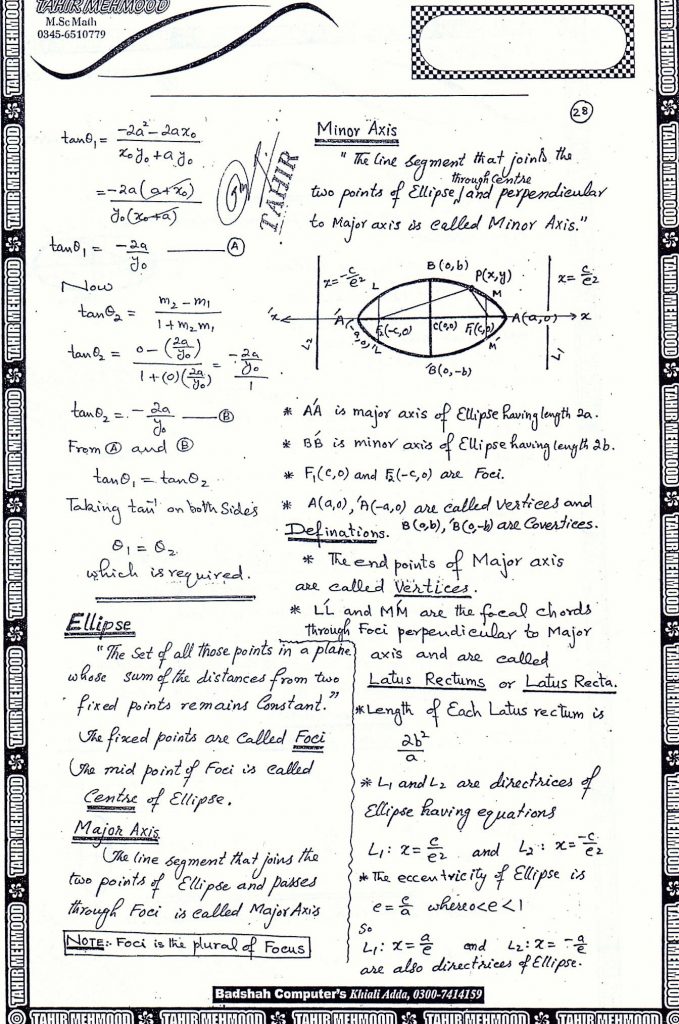 TAHIR MEHMOOD
M.Sc Math
0345-6510779
28
tanθ₁ = (-2a² - 2ax₀)/(x₀y₀ + ay₀)
= -2a(a+x₀)/y₀(x₀+a)
tanθ₁ = -2a/y₀ ——— Ⓐ
Now
tanθ₂ = (m₂ - m₁)/(1 + m₂m₁)
tanθ₂ = (0 - (2a/y₀))/(1 + (0)(2a/y₀)) = (-2a/y₀)/1
tanθ₂ = -2a/y₀ ——— Ⓑ
From Ⓐ and Ⓑ
tanθ₁ = tanθ₂
Taking tan⁻¹ on both Sides
θ₁ = θ₂
which is required.
TAHIR
Ellipse
"The Set of all those points in a plane
whose sum of the distances from two
fixed points remains Constant."
The fixed points are Called Foci
The mid point of Foci is called
Centre of Ellipse.
Major Axis
The line segment that joins the
two points of Ellipse and passes
through Foci is called Major Axis
NOTE:- Foci is the plural of Focus
Minor Axis
"The line segment that joins the
two points of Ellipse, through centre and perpendicular
to Major axis is called Minor Axis."
B(0,b)
P(x,y)
x = -c/e²
x = c/e²
L
M
'x
'A(-a,0)
F₂(-c,0)
C(0,0)
F₁(c,0)
A(a,0)
x
L₂
'L
M'
L₁
'B(0,-b)
* AÁ is major axis of Ellipse having length 2a.
* BB́ is minor axis of Ellipse having length 2b.
* F₁(c,0) and F₂(-c,0) are Foci.
* A(a,0), 'A(-a,0) are called Vertices and
B(0,b), 'B(0,-b) are Covertices.
Definations.
* The end points of Major axis
are called Vertices.
* LĹ and MḾ are the focal chords
through Foci perpendicular to Major
axis and are called
Latus Rectums or Latus Recta.
* Length of Each Latus rectum is
2b²/a
* L₁ and L₂ are directrices of
Ellipse having equations
L₁: x = c/e² and L₂: x = -c/e²
* The eccentricity of Ellipse is
e = c/a where 0<e<1
So
L₁: x = a/e and L₂: x = -a/e
are also directrices of Ellipse.
Badshah Computer's Khiali Adda, 0300-7414159
TAHIR MEHMOOD TAHIR MEHMOOD TAHIR MEHMOOD TAHIR MEHMOOD TAHIR MEHMOOD